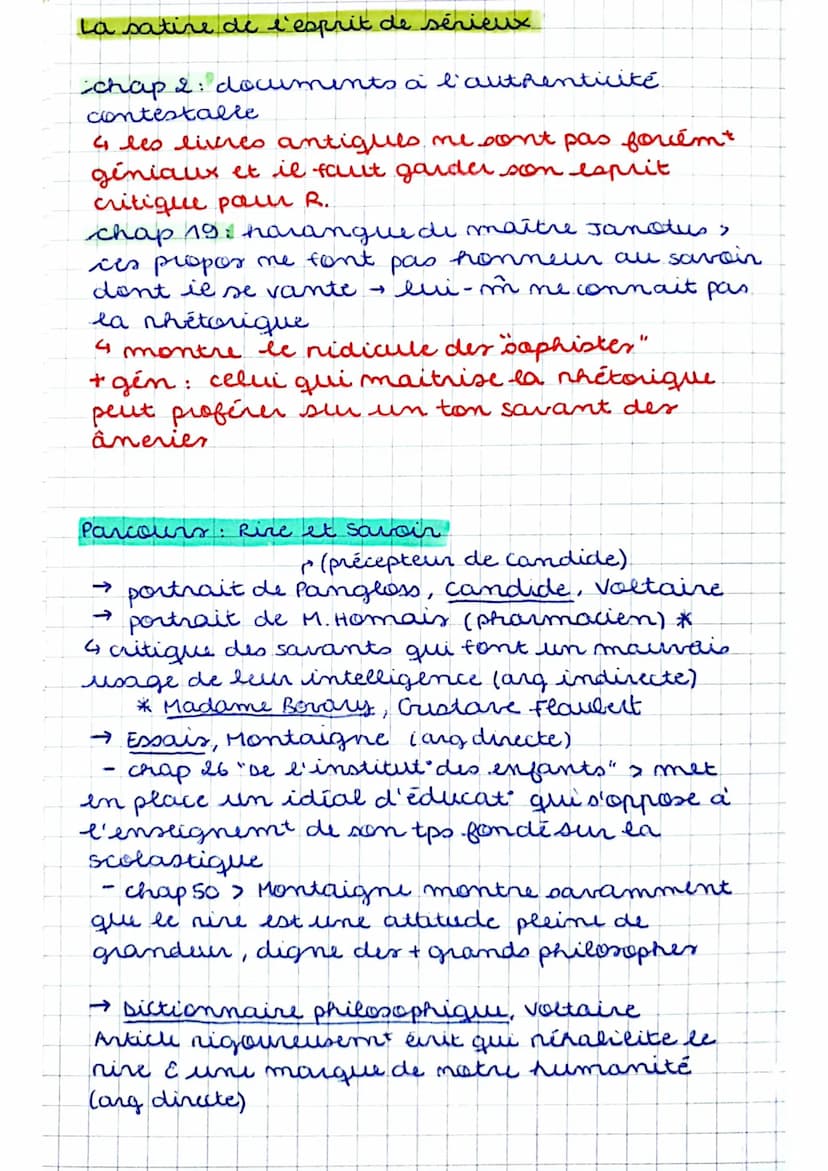 La satire de l'esprit de sérieux
chap 2 : documents à l'authenticité
contestable
↳ les livres antiques ne sont pas forcém^t
géniaux et il faut garder son esprit
critique pour R.
chap 19 : harangue de maître Janotus >
ces propos ne font pas honneur au savoir
dont il se vante → lui-m̂ ne connait pas
la rhétorique
↳ montre le ridicule des "sophistes"
+ gén : celui qui maitrise la rhétorique
peut proférer sur un ton savant des
âneries
Parcours : Rire et savoir
(précepteur de Candide)
→ portrait de Pangloss, Candide, Voltaire
→ portrait de M. Homais (pharmacien) *
↳ critique des savants qui font un mauvais
usage de leur intelligence (arg indirecte)
* Madame Bovary, Gustave Flaubert
→ Essais, Montaigne (arg directe)
- chap 26 "De l'institut° des enfants" > met
en place un idéal d'éducat° qui s'oppose à
l'enseignem^t de son tps fondé sur la
scolastique
- chap 50 > Montaigne montre savamment
que le rire est une attitude pleine de
grandeur, digne des + grands philosophes
→ Dictionnaire philosophique, Voltaire
Article rigoureusem^t écrit qui réhabilite le
rire & une marque de notre humanité
(arg directe)